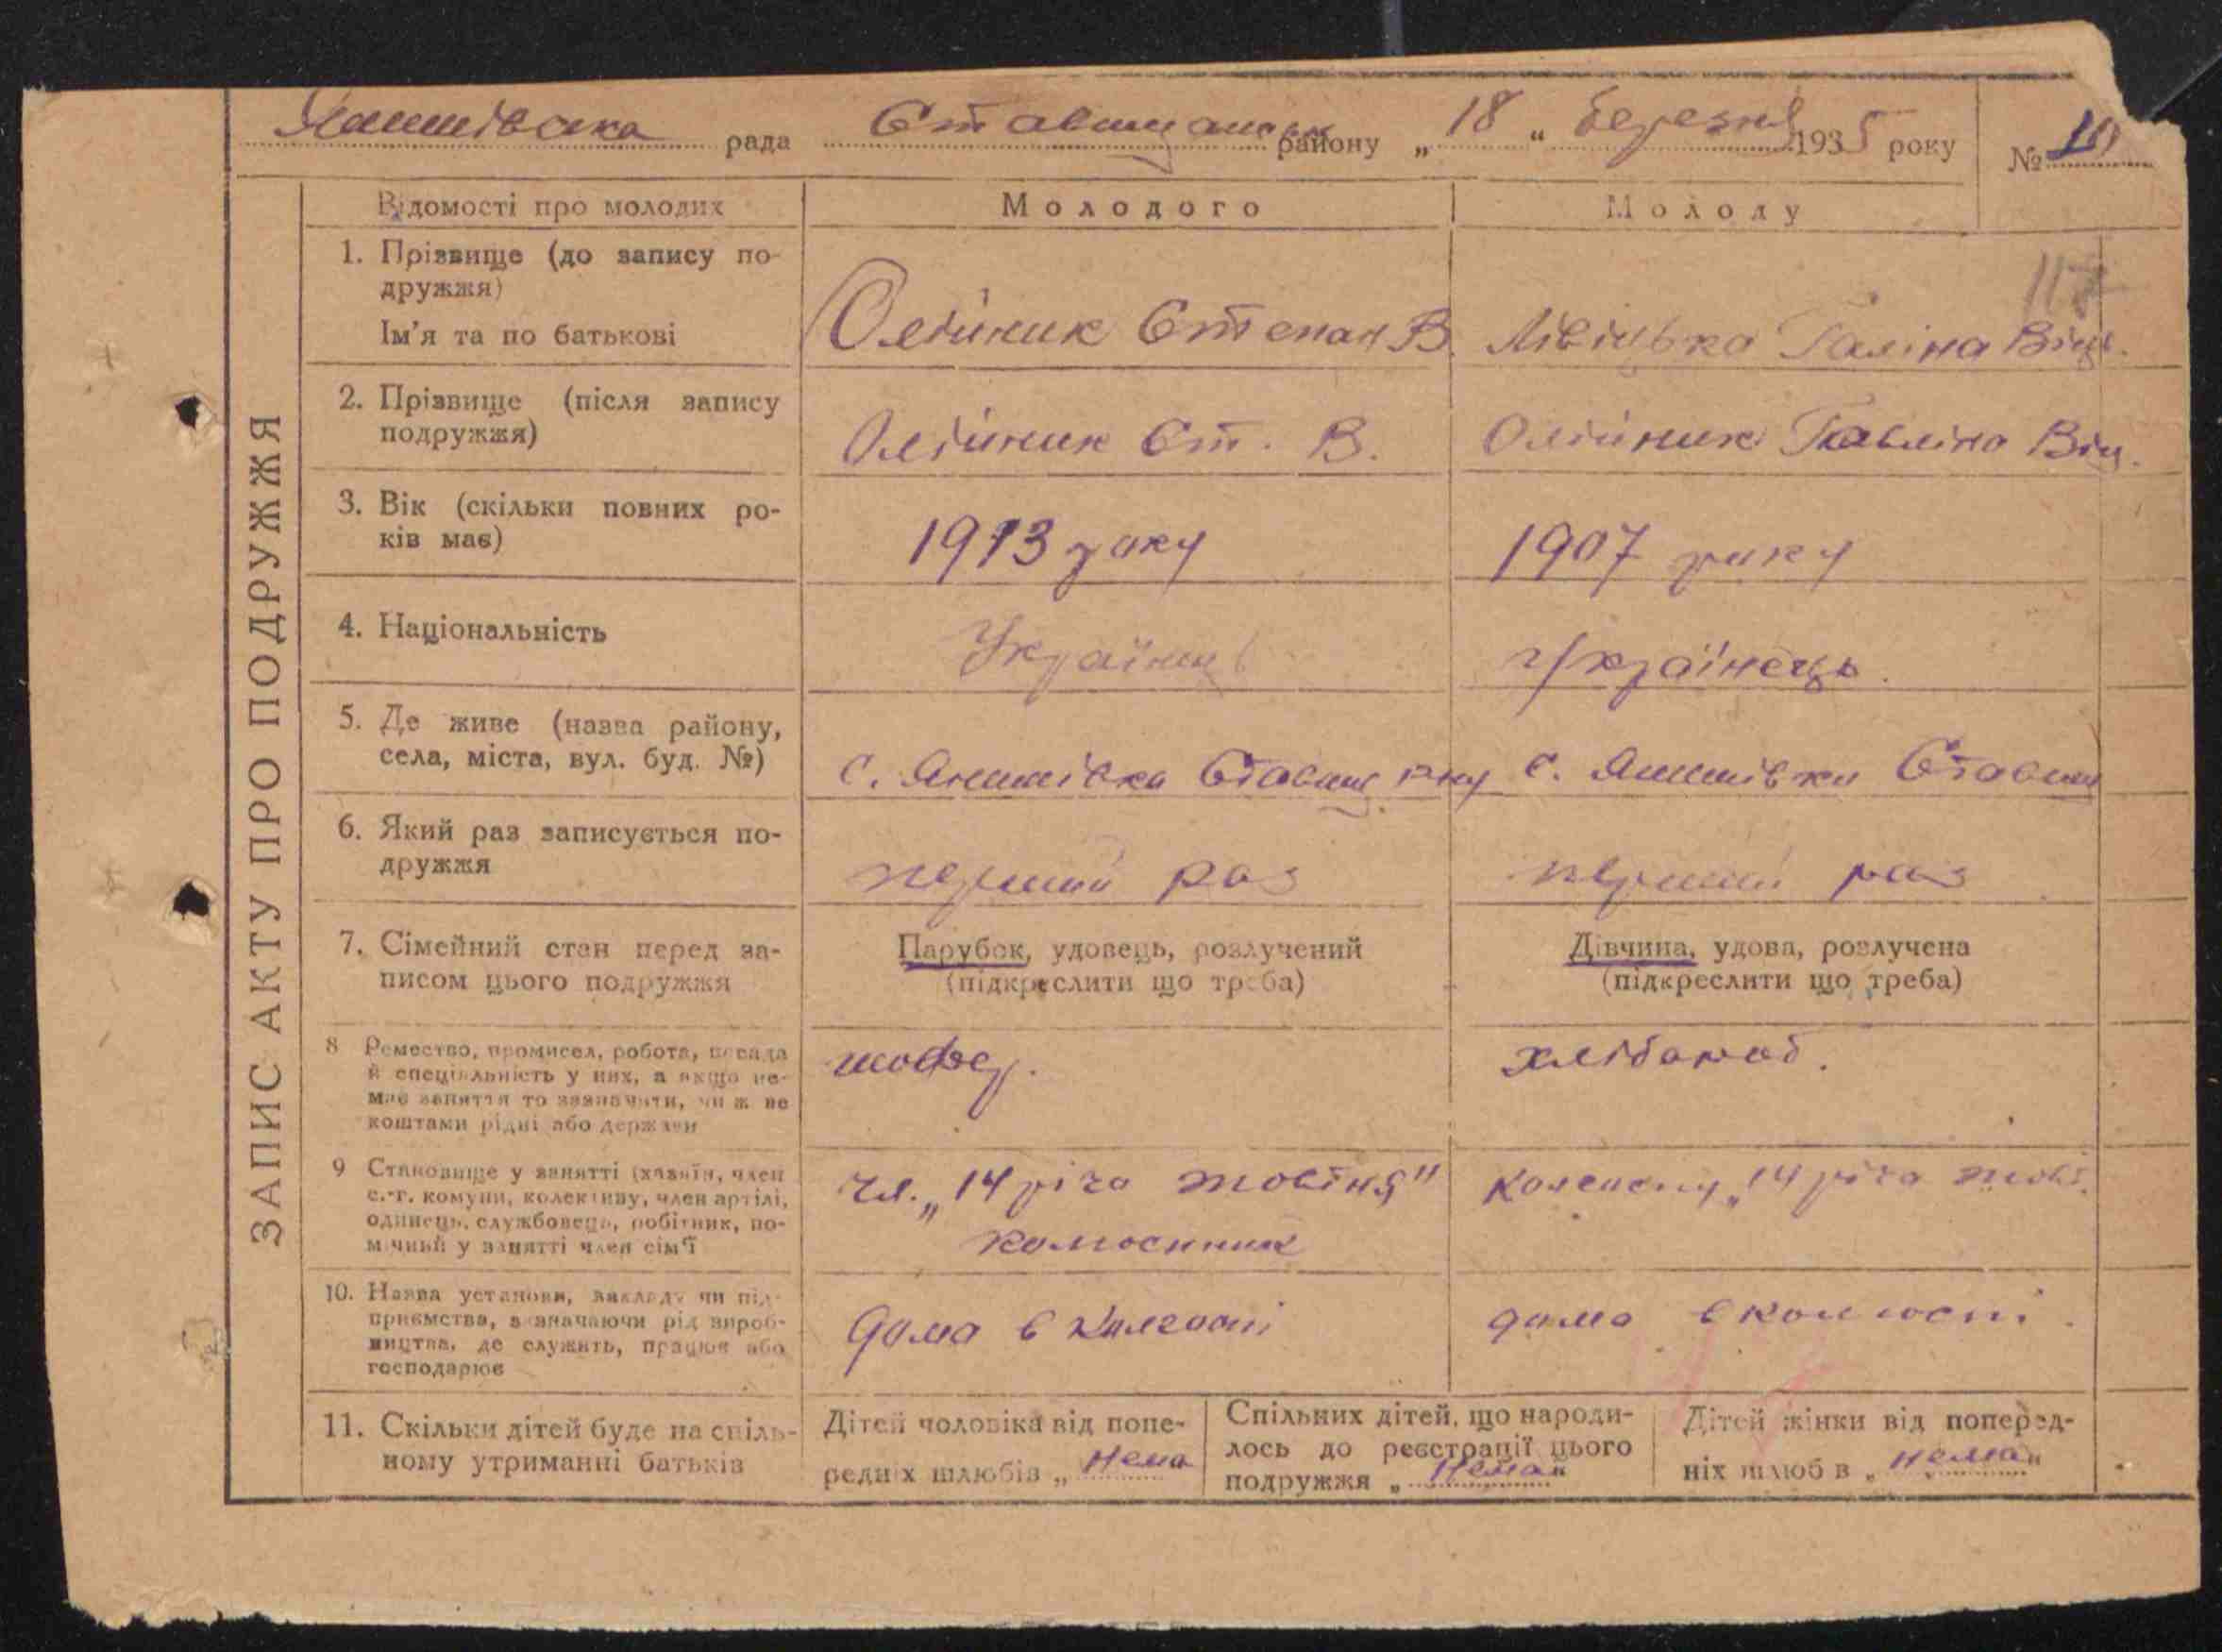 Яшшівська рада Ставищанськ району „ 18 “ березня 1935 року № 10
ЗАПИС АКТУ ПРО ПОДРУЖЖЯ
Відомості про молодих Молодого Молоду
117
1. Прізвище (до запису по-
дружжя)
Ім’я та по батькові
Олійник Степан В. Лівіцька Галіна Віц.
2. Прізвище (після запису
подружжя)
Олійник Ст. В. Олійник Гавліна Віц.
3. Вік (скільки повних ро-
ків має)
1913 року 1907 року
4. Національність
Українець українець.
5. Де живе (назва району,
села, міста, вул. буд. №)
с. Яшшівка Ставищ р-ну с. Яшшівки Ставищ
6. Який раз записується по-
дружжя
перший раз перший раз
7. Сімейний стан перед за-
писом цього подружжя
Парубок, удовець, розлучений
(підкреслити що треба)
Дівчина, удова, розлучена
(підкреслити що треба)
8 Ремество, промисел, робота, посада
й спеціяльність у них, а якщо не-
має заняття то зазначити, чи ж не
коштами рідні або держави
шофер. хлібороб.
9 Становище у занятті (хазяїн, член
с.-г. комуни, колективу, член артілі,
одинець, службовець, робітник, по-
мічний у занятті член сім’ї
чл. „14 річа жовтня“
колгоспник
колгоспу „14 річа жовт.
10. Назва установи, закладу чи під-
приємства, зазначаючи рід вироб-
ництва, де служить, працює або
господарює
дома в колгоспі дома в колгоспі.
11. Скільки дітей буде на спіль-
ному утриманні батьків
Дітей чоловіка від попе-
редніх шлюбів „ нема
Спільних дітей, що народи-
лось до реєстрації цього
подружжя „ нема “
Дітей жінки від поперед-
ніх шлюбів „ нема “